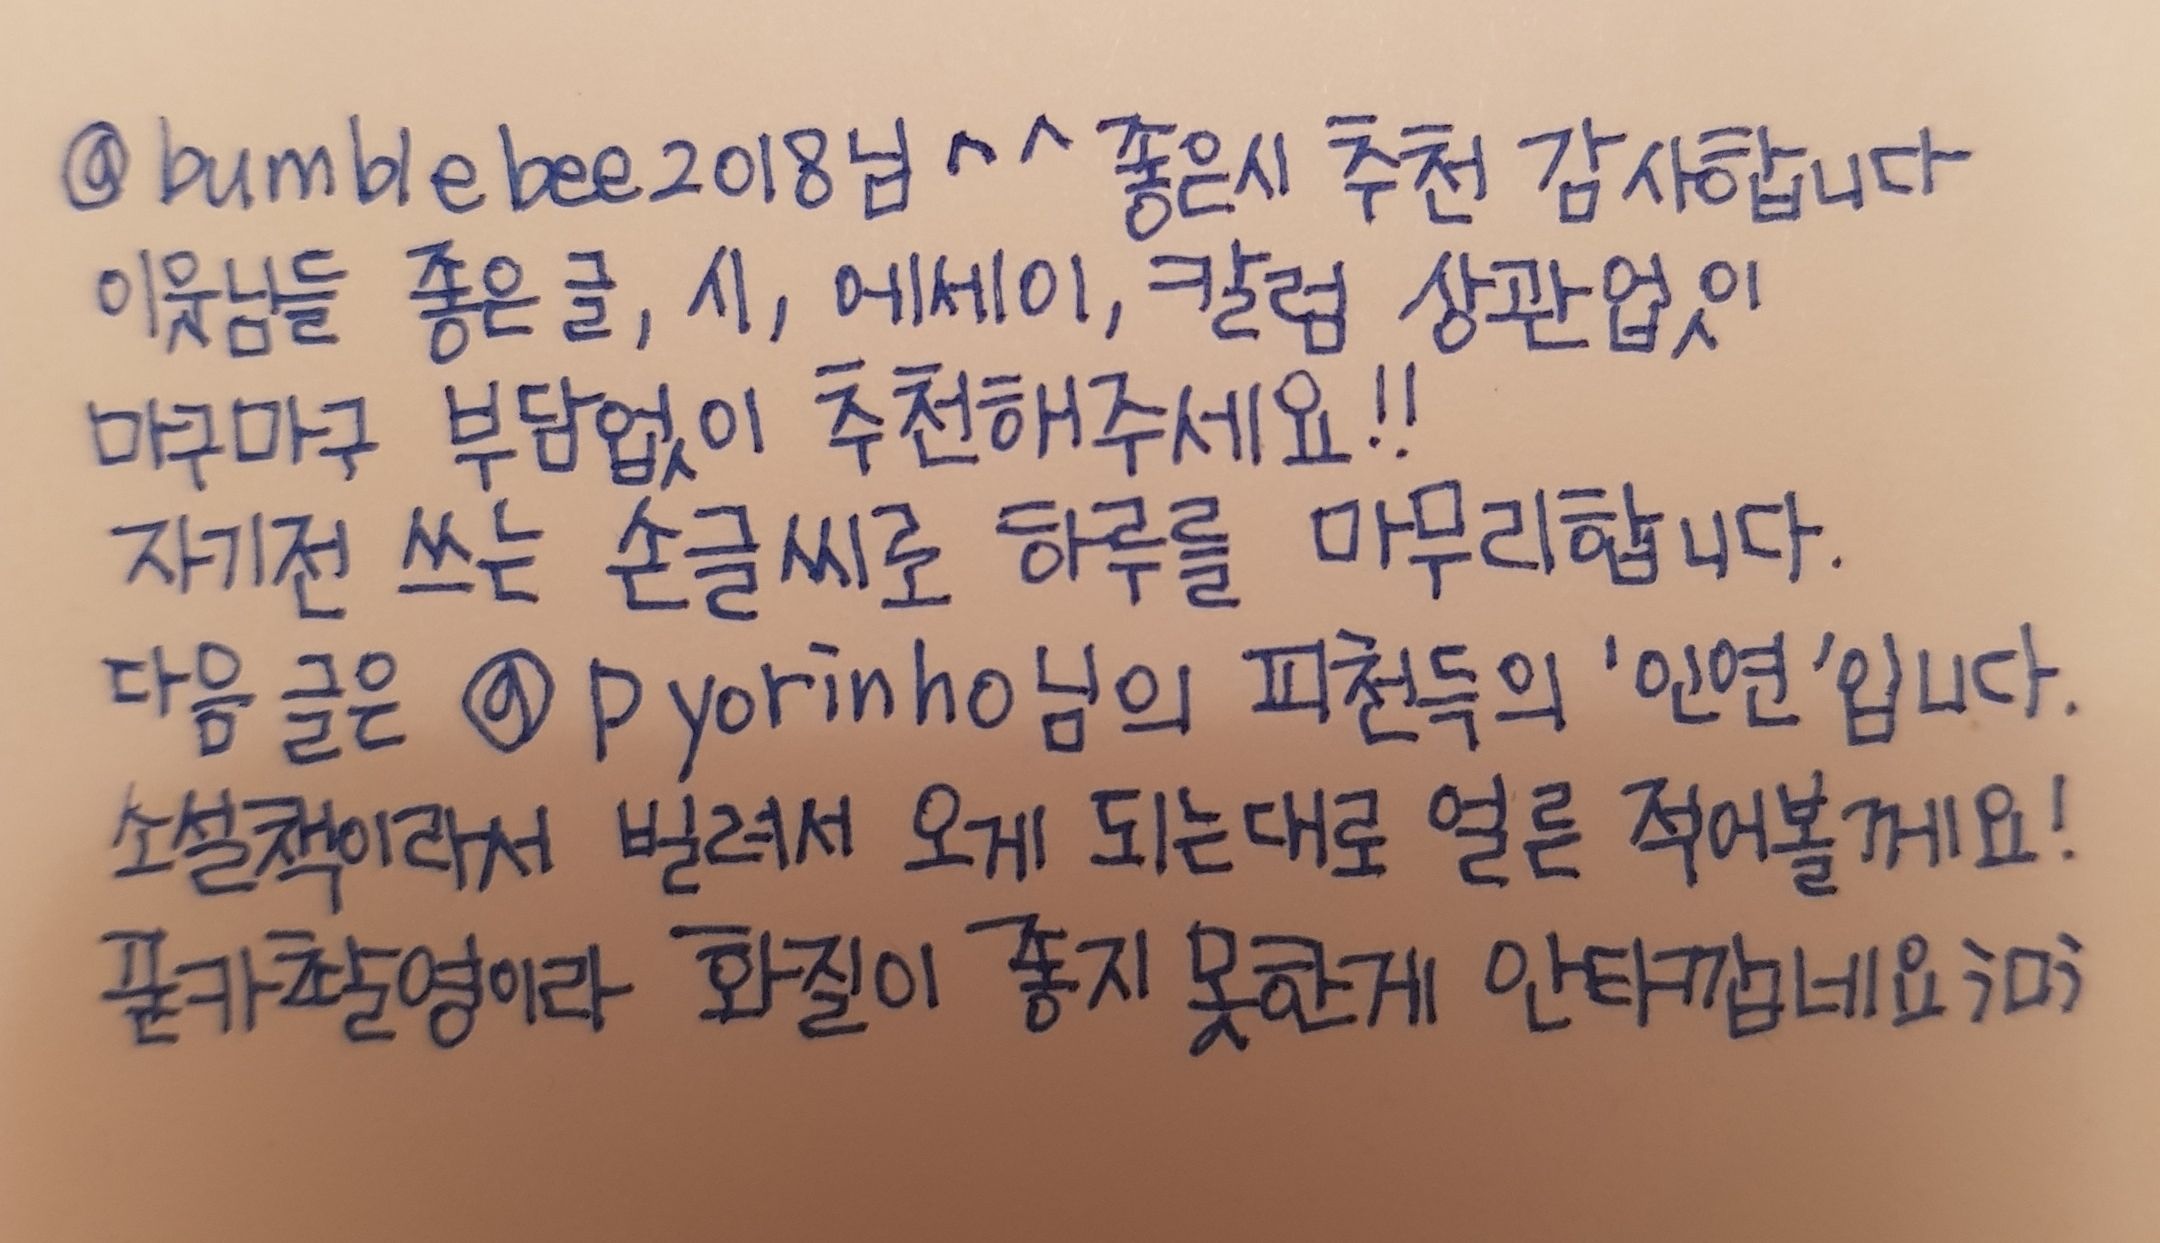 @bumblebee2018님 ^^ 좋은시 추천 감사합니다
이웃님들 좋은글, 시, 에세이, 칼럼 상관없이
마구마구 부담없이 추천해주세요!!
자기전 쓰는 손글씨로 하루를 마무리합니다.
다음글은 @pyorinho님의 피천득의 '인연'입니다.
소설책이라서 빌려서 오게 되는대로 얼른 적어볼께요!
폰카촬영이라 화질이 좋지못한게 안타깝네요;ㅁ;